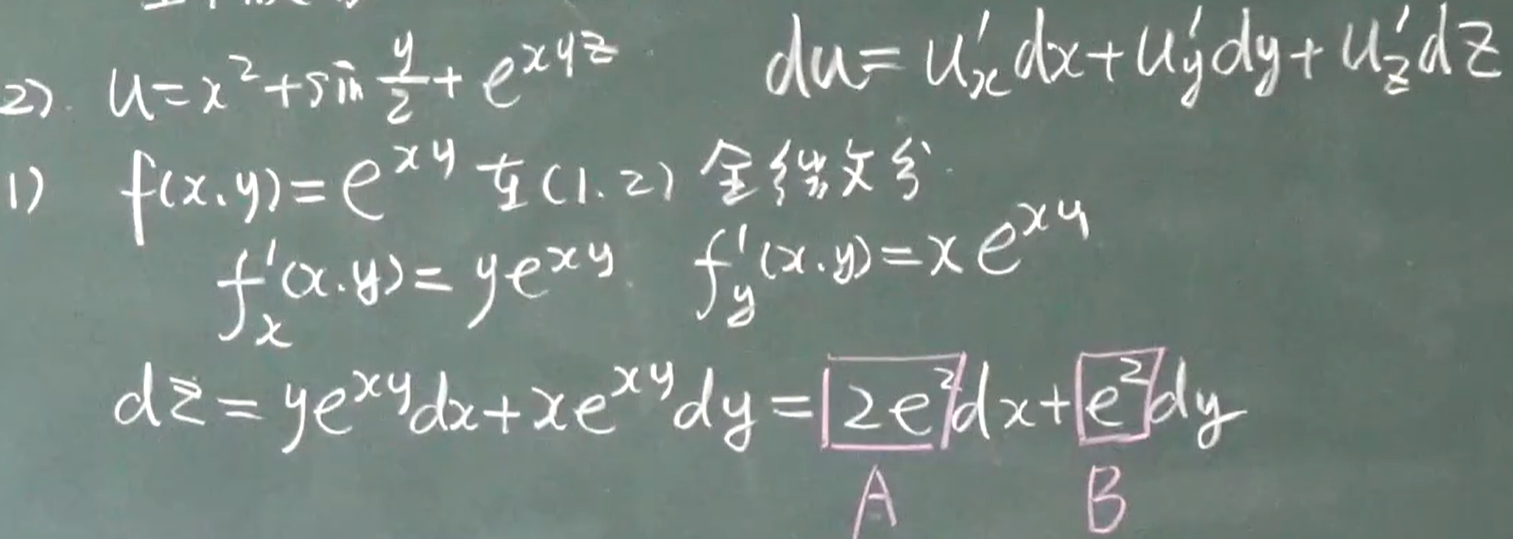 2). u=x²+sin y/2+e^{xyz} du=u'_x dx+u'_y dy+u'_z dz
1) f(x.y)=e^{xy}在(1.2)全微分.
f'_x(x.y)=ye^{xy} f'_y(x.y)=xe^{xy}
dz=ye^{xy}dx+xe^{xy}dy=2e²dx+e²dy
A B